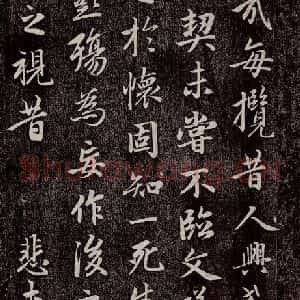 哉每攬昔人興感
契未嘗不臨文
於懷固知一死生
彭殤為妄作後
之視昔悲夫